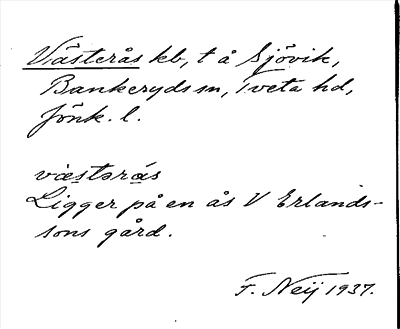 Västerås kb, t å Sjövik,
Bankeryds sn, Tveta hd,
Jönk. l.
væstərås
Ligger på en ås V Erlands-
sons gård.
F. Neij 1937.